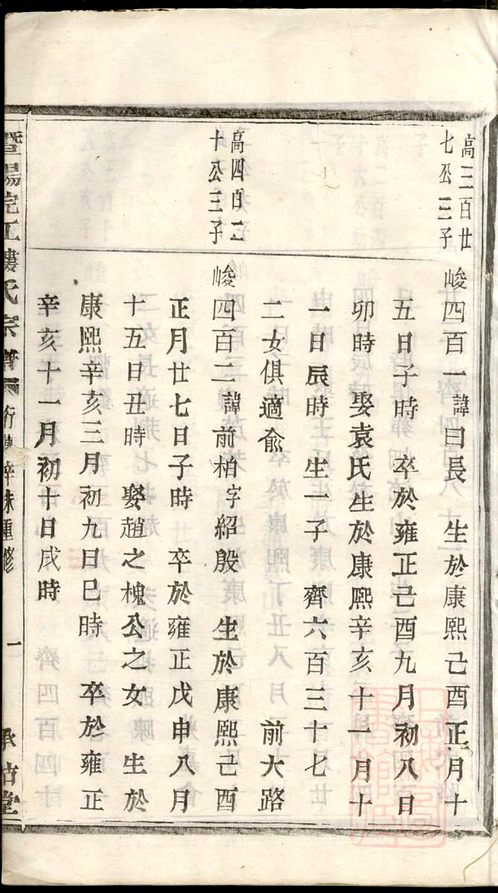 高三百廿
七公三子
峻四百一諱曰長　生於康熙己酉正月十
五日子時　卒於雍正己酉九月初八日
卯時　娶袁氏生於康熙辛亥十一月十
一日辰時　生一子　齊六百三十七
二女俱適俞　前大路
高四百二
十公三子
峻四百二諱前栢字紹殷　生於康熙己酉
正月廿七日子時　卒於雍正戊申八月
十五日丑時　娶趙之槐公之女　生於
康熙辛亥三月初九日巳時　卒於雍正
辛亥十一月初十日戌時
暨陽浣江樓氏宗譜　行　辛未重修　一